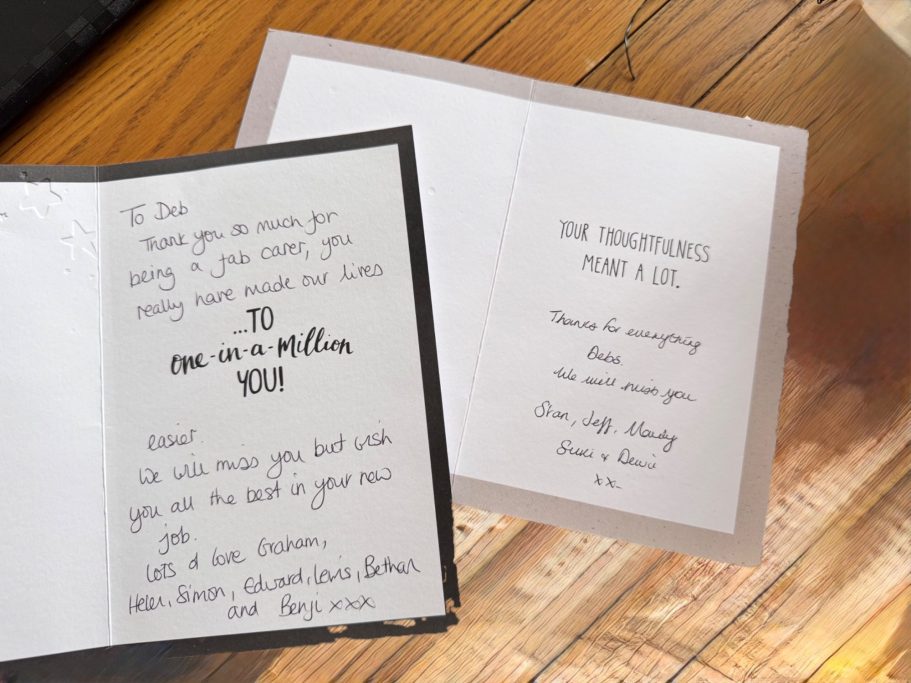 To Deb
Thank you so much for
being a fab carer, you
really have made our lives
...TO
one-in-a-million
YOU!
easier.
We will miss you but wish
you all the best in your new
job.
Lots of love Graham,
Helen, Simon, Edward, Lewis, Bethan
and Benji xxx
YOUR THOUGHTFULNESS
MEANT A LOT.
Thanks for everything
Debs.
We will miss you
Stan, Jeff, Mandy
Suki & Dewi
xx